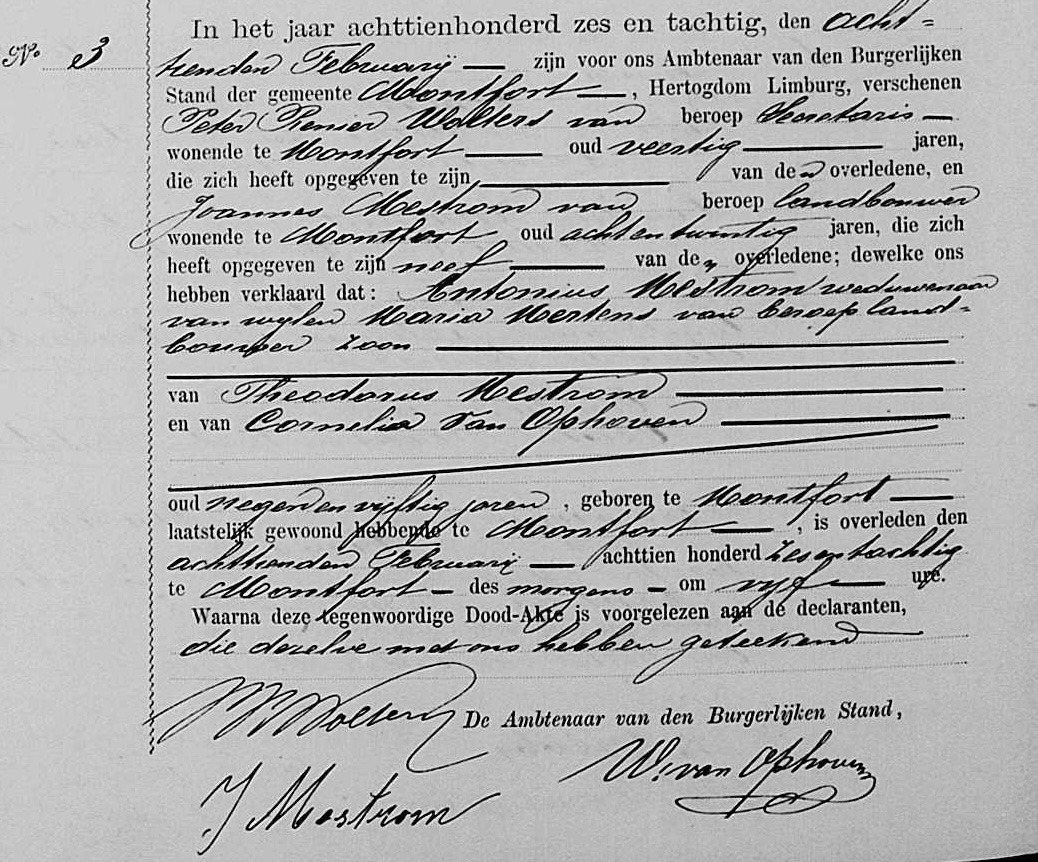 In het jaar achttienhonderd zes en tachtig, den acht=
No. 3
tienden Februarij — zijn voor ons Ambtenaar van den Burgerlijken
Stand der gemeente Montfort —, Hertogdom Limburg, verschenen
Peter Renier Wolters van beroep Secretaris —
wonende te Montfort — oud veertig — jaren,
die zich heeft opgegeven te zijn — van den overledene, en
Joannes Mestrom van beroep landbouwer
wonende te Montfort oud achtentwintig jaren, die zich
heeft opgegeven te zijn neef — van den overledene; dewelke ons
hebben verklaard dat: Antonius Mestrom weduwenaar
van wijlen Maria Mertens van beroep land=
bouwer zoon —
van Theodorus Mestrom —
en van Cornelia Van Ophoven —
oud negenenvijftig jaren, geboren te Montfort —
laatstelijk gewoond hebbende te Montfort —, is overleden den
achttienden Februarij — achttien honderd zesentachtig
te Montfort — des morgens — om vijf — ure.
Waarna deze tegenwoordige Dood-Akte is voorgelezen aan de declaranten,
die dezelve met ons hebben geteekend
Wolters
De Ambtenaar van den Burgerlijken Stand,
W. van Ophoven
J Mestrom